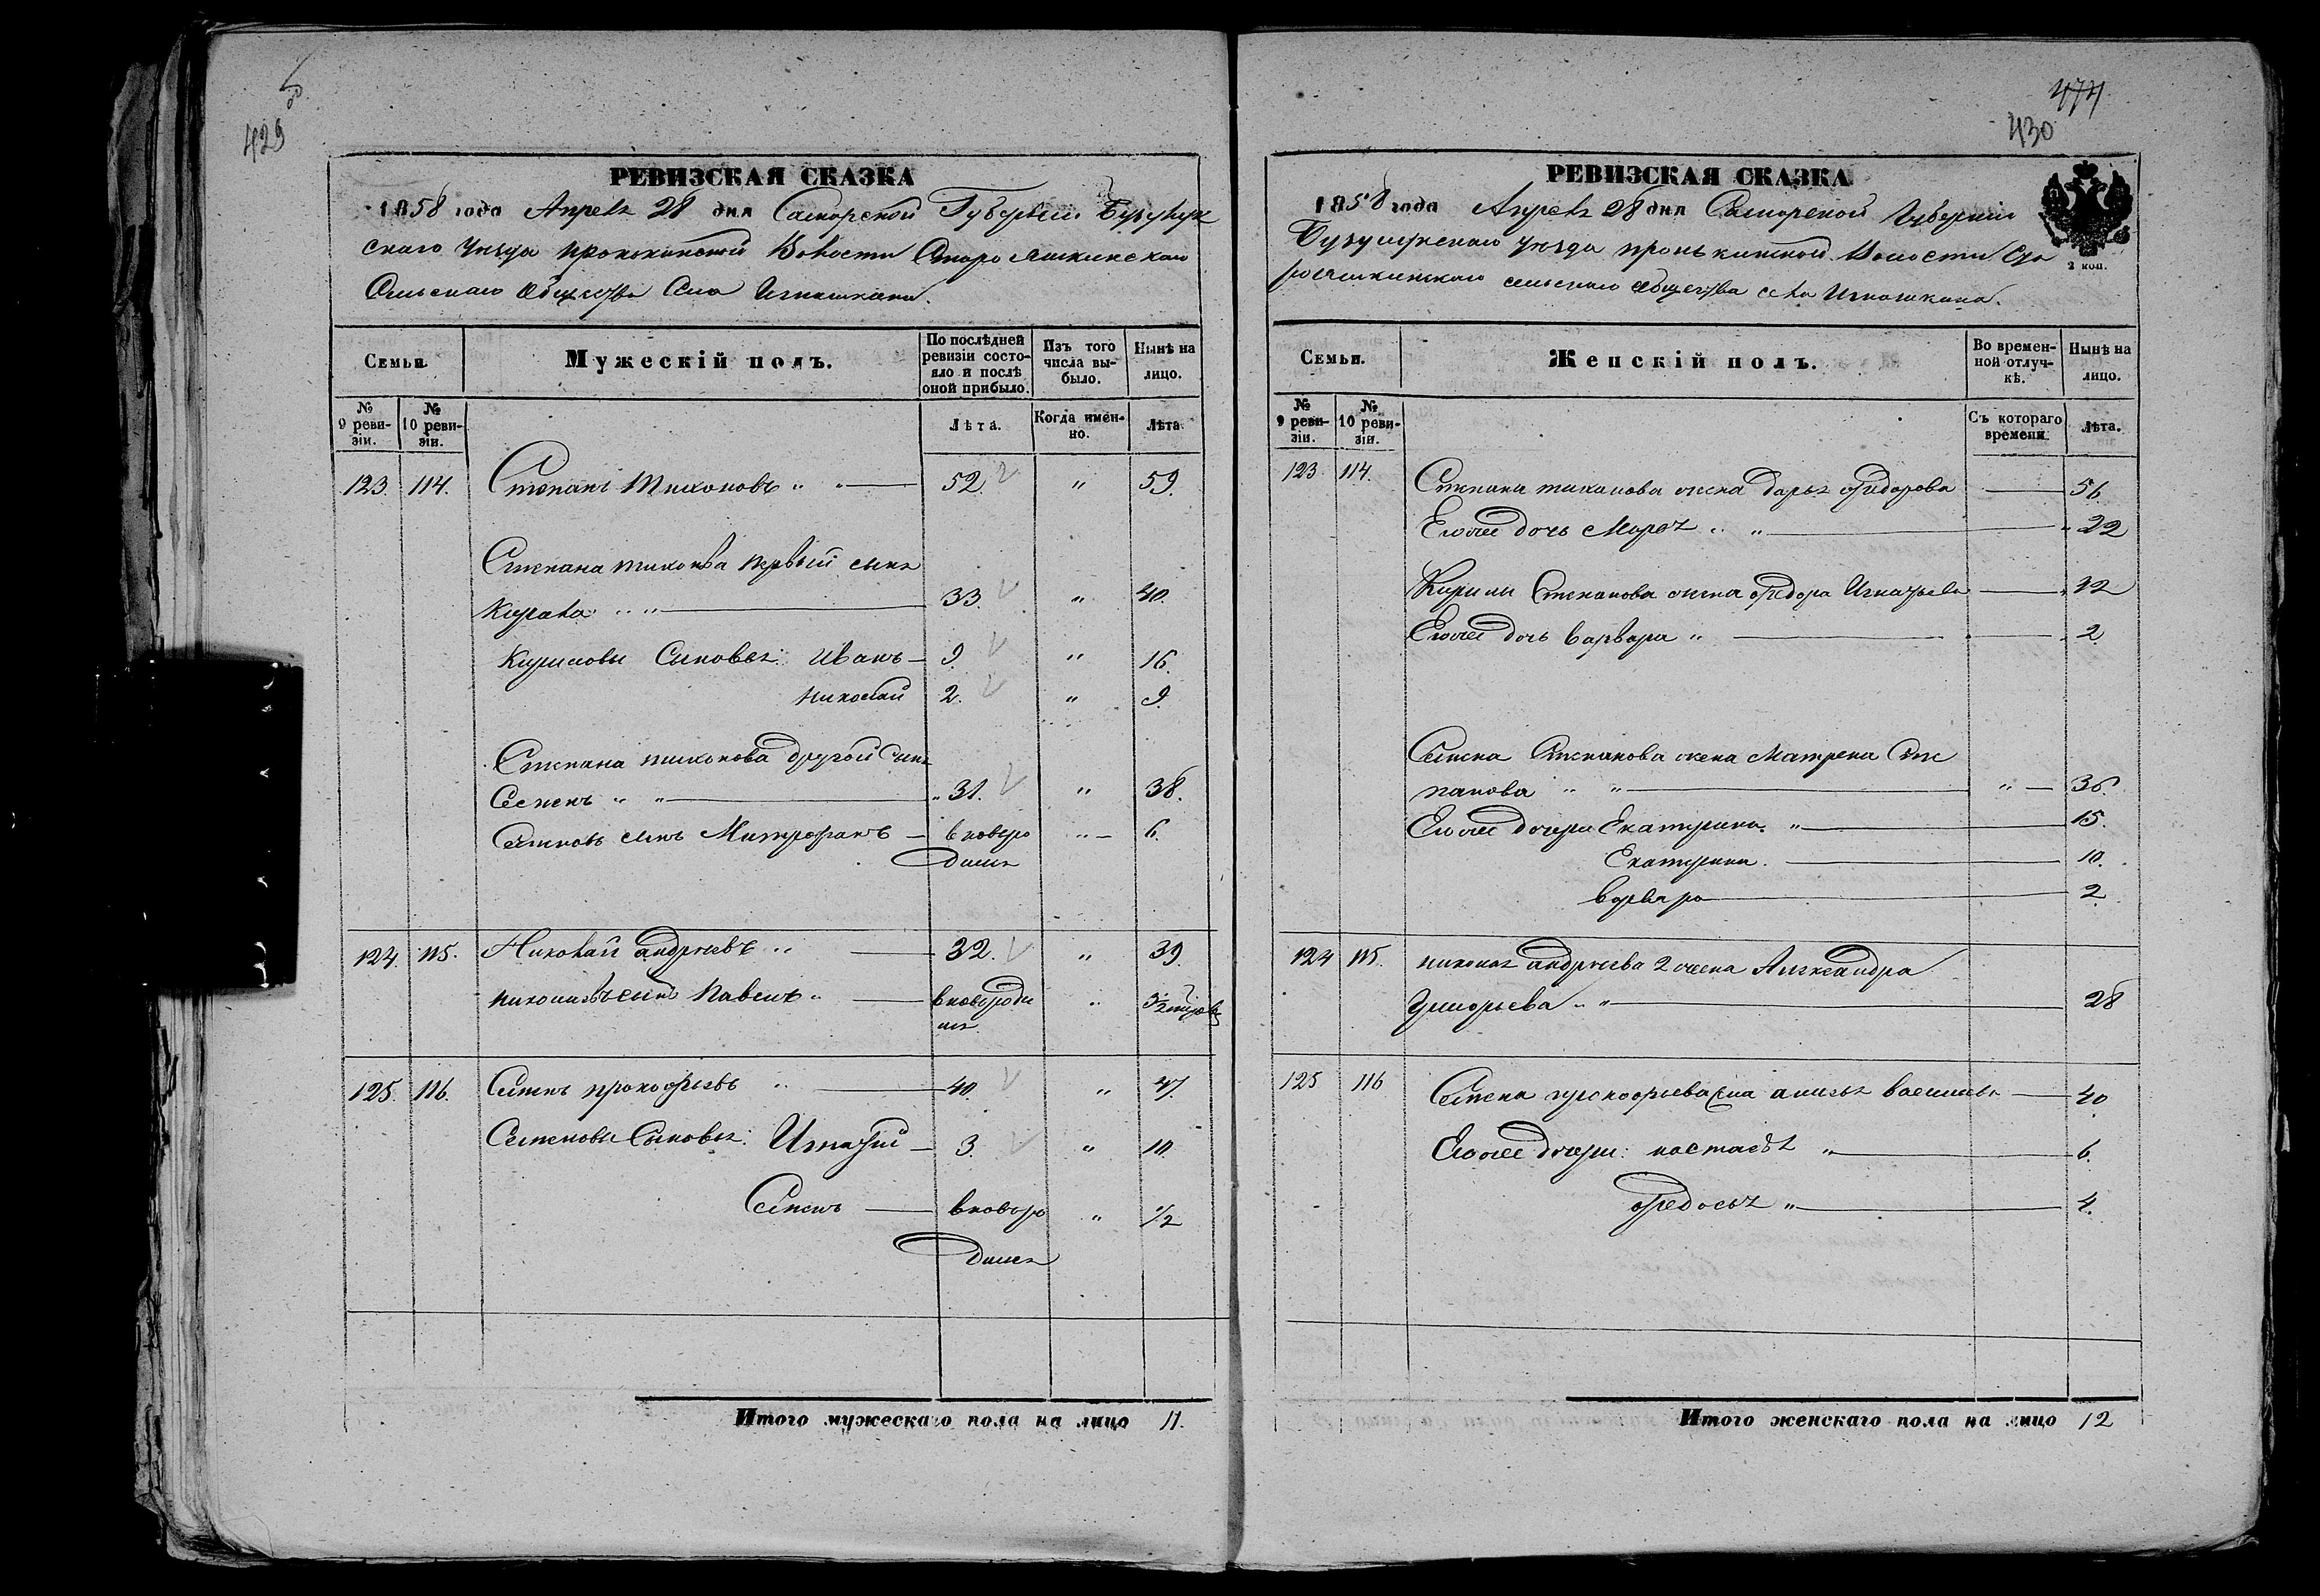 429
РЕВИЗСКАЯ СКАЗКА
1858 года Апреля 28 дня Самарской Губернии Бузулук
скаго Уезда пронькинской Волости Старо Яшкинскаго
Сельскаго Общества Села Игнашкина.
Семьи.
Мужескій полъ.
По послѣдней
ревизіи состо-
яло и послѣ
оной прибыло.
Изъ того
числа вы-
было.
Нынѣ на
лицо.
№
9 реви-
зіи.
№
10 реви-
зіи.
Лѣта.
Когда имен-
но.
Лѣта.
123. 114. Степанъ Тихоновъ " " 52. " 59.
Степана тихонова первый сынъ
Кирила " " 33. " 40.
Кириловы Сыновья: Иванъ 9. " 16.
николай 2. " 9.
Степана тихонова другой Сынъ
Семенъ " " 31. " 38.
Семеновъ сынъ Митрофанъ вновьро " 6.
дился
124. 115. Николай андреевъ " 32. " 39.
николаевъ сынъ Павелъ " вновьроди "
лся
125. 116. Семенъ прокофьевъ " 40. " 47.
Семеновы Сыновья: Игнатий 3. " 10.
Семенъ вновьро " 1/2
дился
Итого мужескаго пола на лицо 11.
474
430
РЕВИЗСКАЯ СКАЗКА
1858 года Апреля 28 дня Самарской Губернии
Бузулукскаго уезда пронькинской Волости Ста
рояшкинскаго сельскаго общества села Игнашкина.
2 коп.
Семьи.
Женскій полъ.
Во времен-
ной отлуч-
кѣ.
Нынѣ на
лицо.
№
9 реви-
зіи.
№
10 реви-
зіи.
Съ котораго
времени.
Лѣта.
123. 114. Степана тихонова жена дарья Федорова 56.
Егоже дочь Марья " " 22
Кирилы Степанова жена Федора Игнатьева 42
Егоже дочь варвара " 2.
Семена Степанова жена Матрена Сте
панова " " " 36.
Егоже дочери Екатерина " 15.
Екатерина. 10.
варвара 2
124 115. николая андреева 2 жена Александра
Григорьева " " 28
125 116 Семена прокофьева васильева 40
Егоже дочери: настасья " 6.
Федосья " 4.
Итого женскаго пола на лицо 12